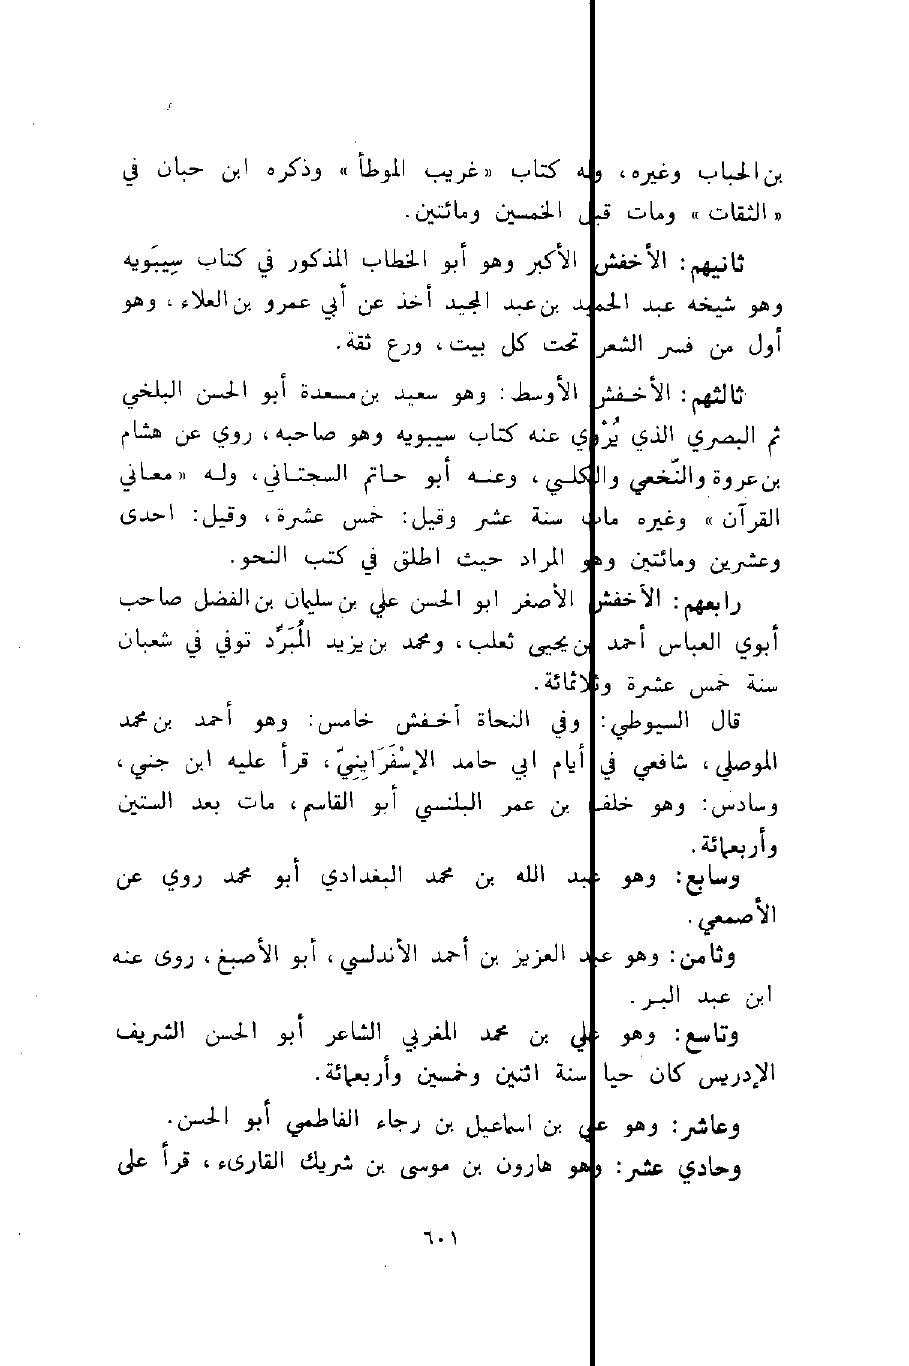 بن الحباب وغيره، وله كتاب «غريب الموطأ» وذكره ابن حبان في
«الثقات» ومات قبل الخمسين ومائتين.
ثانيهم: الأخفش الأكبر وهو أبو الخطاب المذكور في كتاب سِيبَويه
وهو شيخه عبد الحميد بن عبد المجيد أخذ عن أبي عمرو بن العلاء، وهو
أول من فسر الشعر تحت كل بيت، ورع ثقة.
ثالثهم: الأخفش الأوسط: وهو سعيد بن مسعدة أبو الحسن البلخي
ثم البصري الذي يُرْوي عنه كتاب سيبويه وهو صاحبه، روي عن هشام
بن عروة والنّخعي والكلبي، وعنه أبو حاتم السجتاني، وله «معاني
القرآن» وغيره مات سنة عشر وقيل: خمس عشرة، وقيل: احدى
وعشرين ومائتين وهو المراد حيث اطلق في كتب النحو.
رابعهم: الأخفش الأصغر ابو الحسن علي بن سليمان بن الفضل صاحب
أبوي العباس أحمد بن يحيى ثعلب، ومحمد بن يزيد المُبَرَّد توفي في شعبان
سنة خمس عشرة وثلاثمائة.
قال السيوطي: وفي النحاة أخفش خامس: وهو أحمد بن محمد
الموصلي، شافعي في أيام ابي حامد الإسْفَرَايِنِيّ، قرأ عليه ابن جني،
وسادس: وهو خلف بن عمر البلنسي أبو القاسم، مات بعد الستين
وأربعمائة.
وسابع: وهو عبد الله بن محمد البغدادي أبو محمد روي عن
الأصمعي.
وثامن: وهو عبد العزيز بن أحمد الأندلسي، أبو الأصبغ، روى عنه
ابن عبد البر.
وتاسع: وهو علي بن محمد المغربي الشاعر أبو الحسن الشريف
الإدريس كان حيا سنة اثنين وخمسين وأربعمائة.
وعاشر: وهو علي بن اسماعيل بن رجاء الفاطمي أبو الحسن.
وحادي عشر: وهو هارون بن موسى بن شريك القارىء، قرأ على
٦٠١